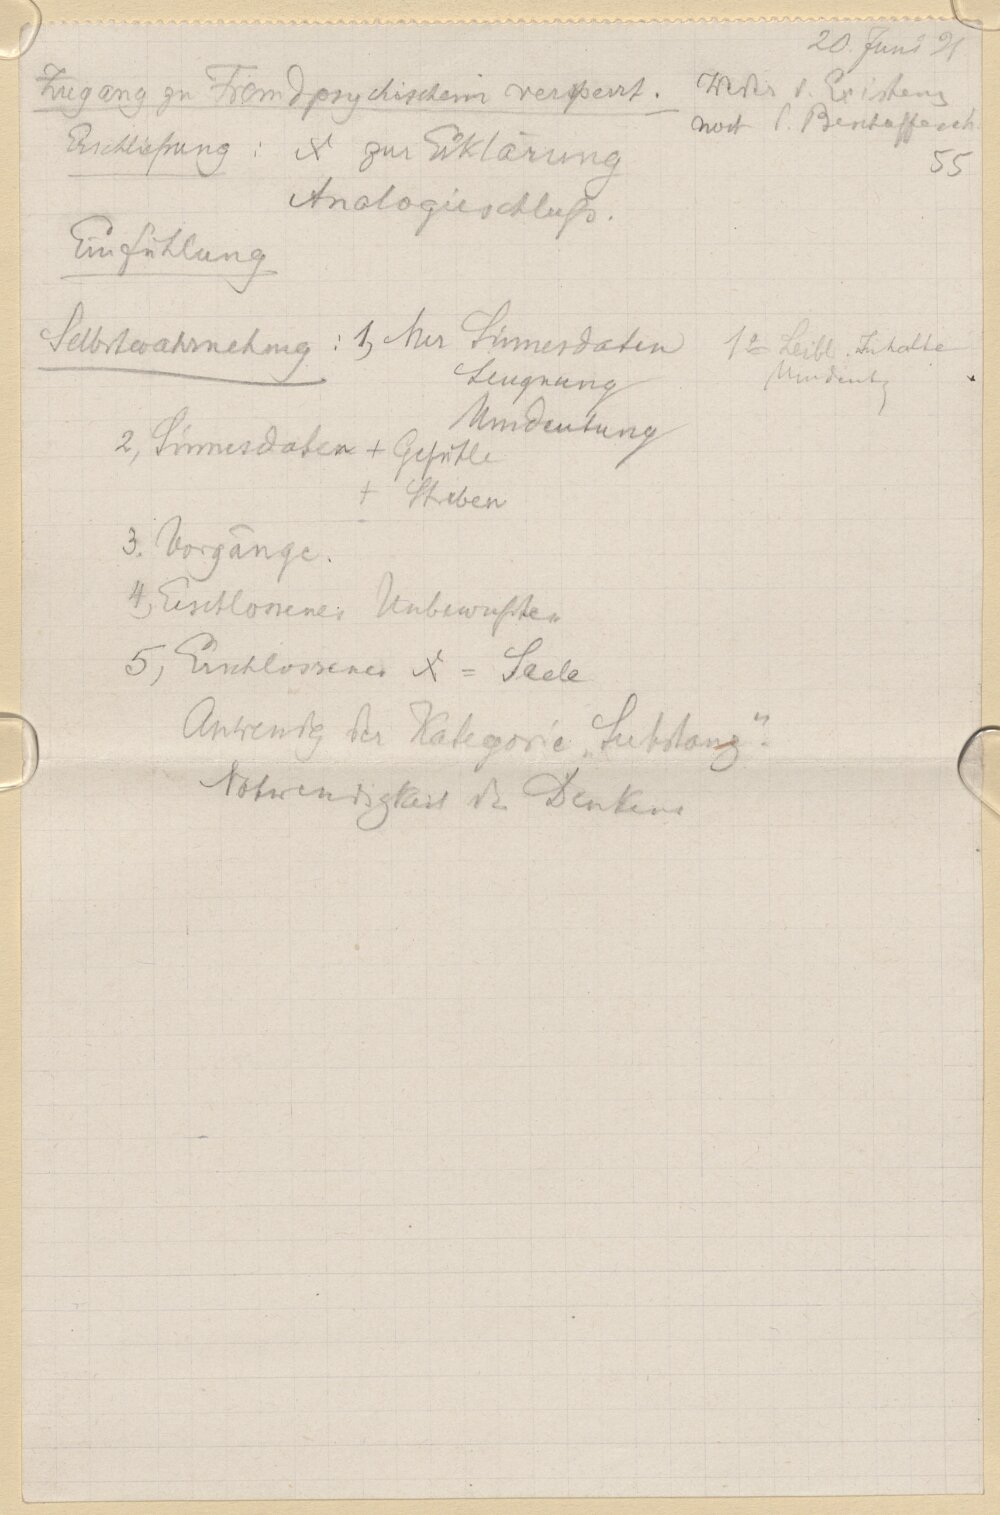 20. Juni 21
Zugang zu Fremdpsychischem versperrt.
Weder d. Existenz
noch d. Beschaffench.
55
Erschließung : X zur Erklärung
Analogieschluß.
Einfühlung
Selbstwahrnehmung : 1, Nur Sinnesdaten
Leugnung
Umdeutung
1a Leibl. Inhalte
Umdeutg
2, Sinnesdaten + Gefühle
+ Streben
3. Vorgänge.
4, Erschlossenes Unbewußtes
5, Erschlossenes X = Seele
Anwendg der Kategorie „Substanz".
Notwendigkeit des Denkens